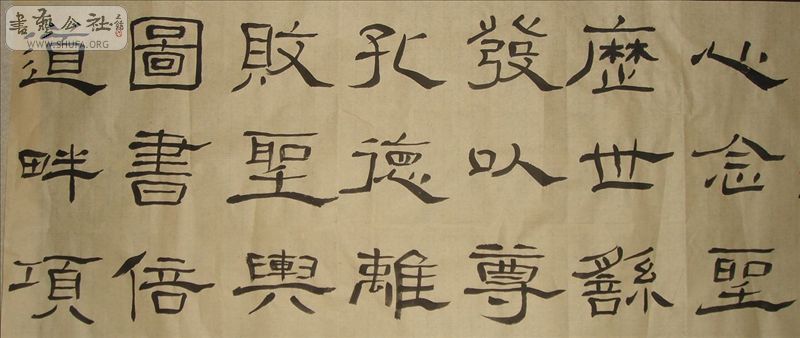 心念聖
歷世繇
發以尊
孔德離
敗聖輿
圖書倍
道畔項
書藝公社
WWW.SHUFA.ORG